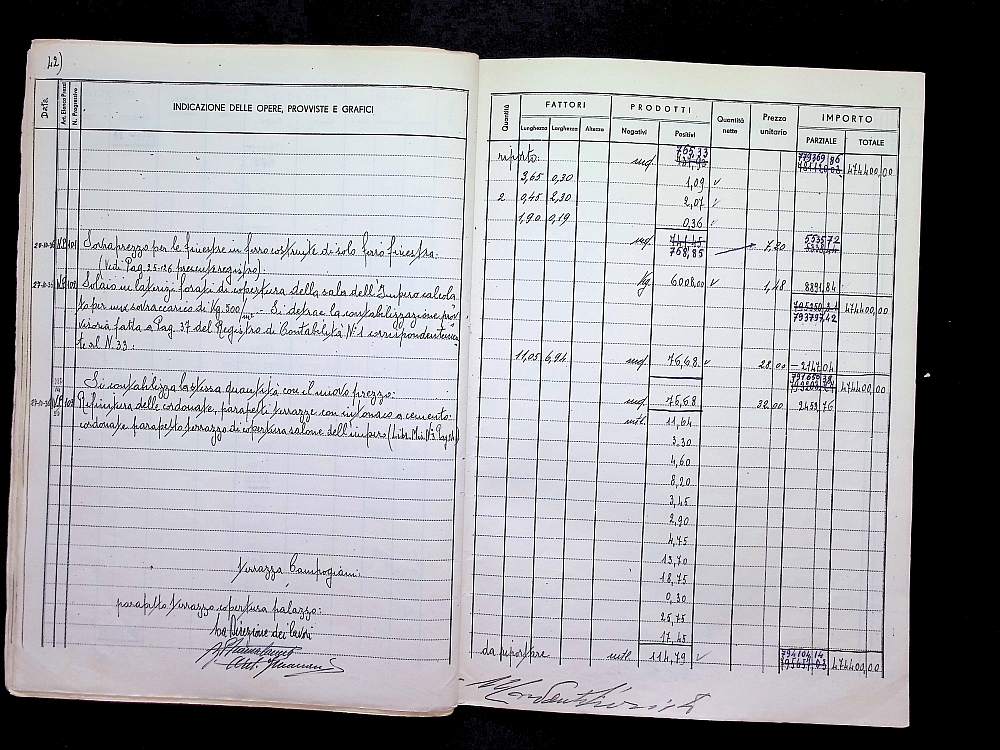 42)
Data
Art. Elenco Prezzi
N. Progressivo
INDICAZIONE DELLE OPERE, PROVVISTE E GRAFICI
101 Sovraprezzo per le finestre in ferro costruite di solo ferro finestra.
(Vedi Pag. 25-126 presente registro).
Solaio in laterizi forati di copertura della sala dell'Impero calcola
to per una sovraccarico di Kg. 500/m² - Si detrae la contabilizzazione prov
visoria fatta a Pag. 37 del Registro di Contabilità N. 1 corrispondentemen
te al N. 33:
Si contabilizza la stessa quantità con il nuovo prezzo:
103 delle cordonate, parapetti terrazze con intonaco a cemento:
cordonate parapetto terrazzo di copertura salone dell'impero (Libr. Mis. N.3 Pag.
Terrazza Campogiani:
parapetto terrazzo copertura palazzo:
La Direzione dei lavori
Quantità
FATTORI
Lunghezza Larghezza Altezza
PRODOTTI
Negativi Positivi
Quantità nette
Prezzo unitario
IMPORTO
PARZIALE TOTALE
riporto: mq. 765,33 779369,86 474400,00
3,65 0,30 1,09
2 0,45 2,30 2,07
1,90 0,19 0,36
mq. 768,85 7,20 5535,72
Kg. 6008,00 1,48 8891,84
474400,00
793797,42
11,05 6,94 mq. 76,68 28.00 - 2147,04
474400,00
mq. 76,68 32.00 2453,76
mtl. 11,64
3.30
4,60
8,20
3,45
2,90
4,75
13,70
18,75
0,30
25,75
17,45
da riportare mtl. 114,79 794104,14 474400,00